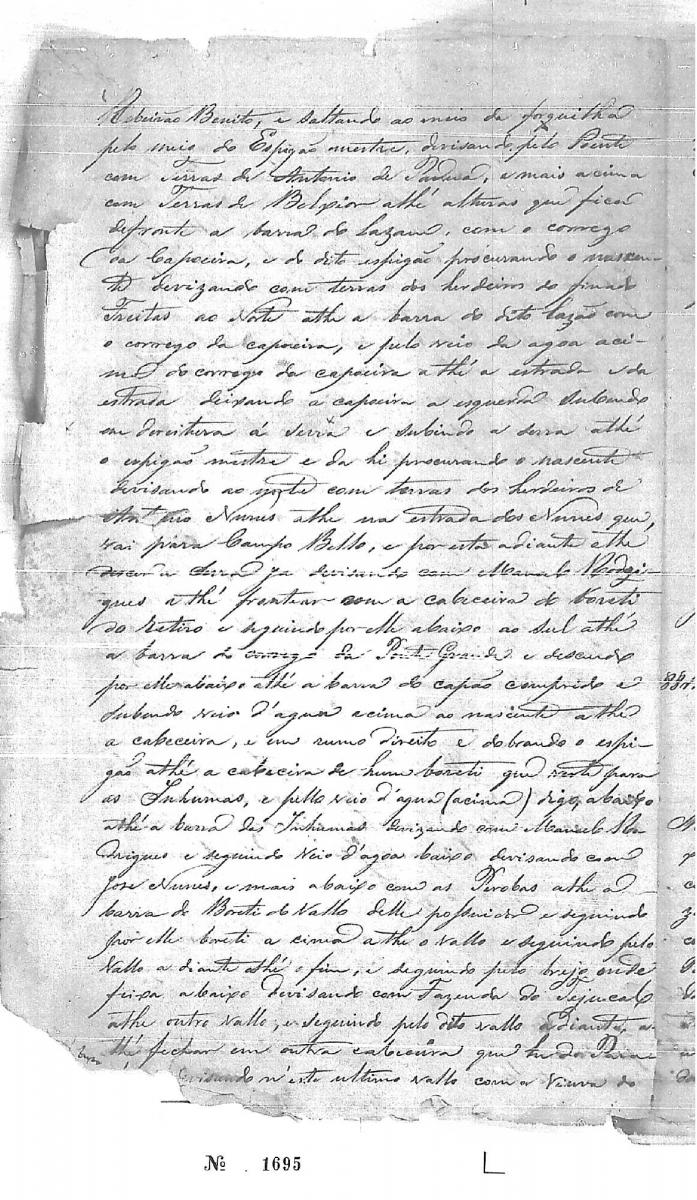 Ribeirão Bonito, e saltando ao meio da forquilha
pelo meio do Espigão mestre, devisando pelo Poente
com Terras de Antonio de Padua, e mais acima
com Terras de Belxior athé alturas que fica
defronte a barra do Lazam, com o corrego
da Capoeira, e do dito espigão procurando o nascen-
te devizando com terras dos herdeiros do finado
Freitas ao Norte athe a barra do dito Lazão com
o corrego da capoeira, e pelo veio da agoa aci-
ma do corrego da capoeira athé a estrada e da
estrada deixando a capoeira a esquerda subindo
em direitura á serra e subindo a serra athé
o espigão mestre e da hi procurando o nascente
devisando ao norte com terras dos herdeiros de
Antº Nunes athe na estrada dos Nunes que
vai para Campo Bello, e por esta adiante athe
descer a Serra ja devisando com Manoel Rodri-
gues athé frontear com a cabeceira do boreti
do Retiro e seguindo por elle abaixo ao sul athé
a barra do corrego da Ponte Grande e descendo
por elle abaixo athé a barra do capão comprido e
subindo veio d'agua acima ao nascente athe
a cabeceira, e em rumo direito e dobrando o espi-
gão athé a cabeceira de hum boreti que verte para
as Inhumas, e pello veio d'agua (acima) digo, abaixo
athé a barra das Inhumas devizando com Manoel Ro
drigues e seguindo veio d'agoa abaixo devisando com
José Nunes, e mais abaixo com as Perobas athe a
barra do Boreti do Vallo delle possuidor e seguindo
por elle boreti a cima athe o vallo e seguindo pelo
vallo a diante athé o fim, e seguindo pelo brejo onde
feixa, abaixo devisando com Fazenda do Tejucal
athe outro vallo, e seguindo pelo dito vallo adiante, a-
thé fechar em outra cabeceira que he do
devisando n'este ultimo vallo com a Viuva do
Nº 1695